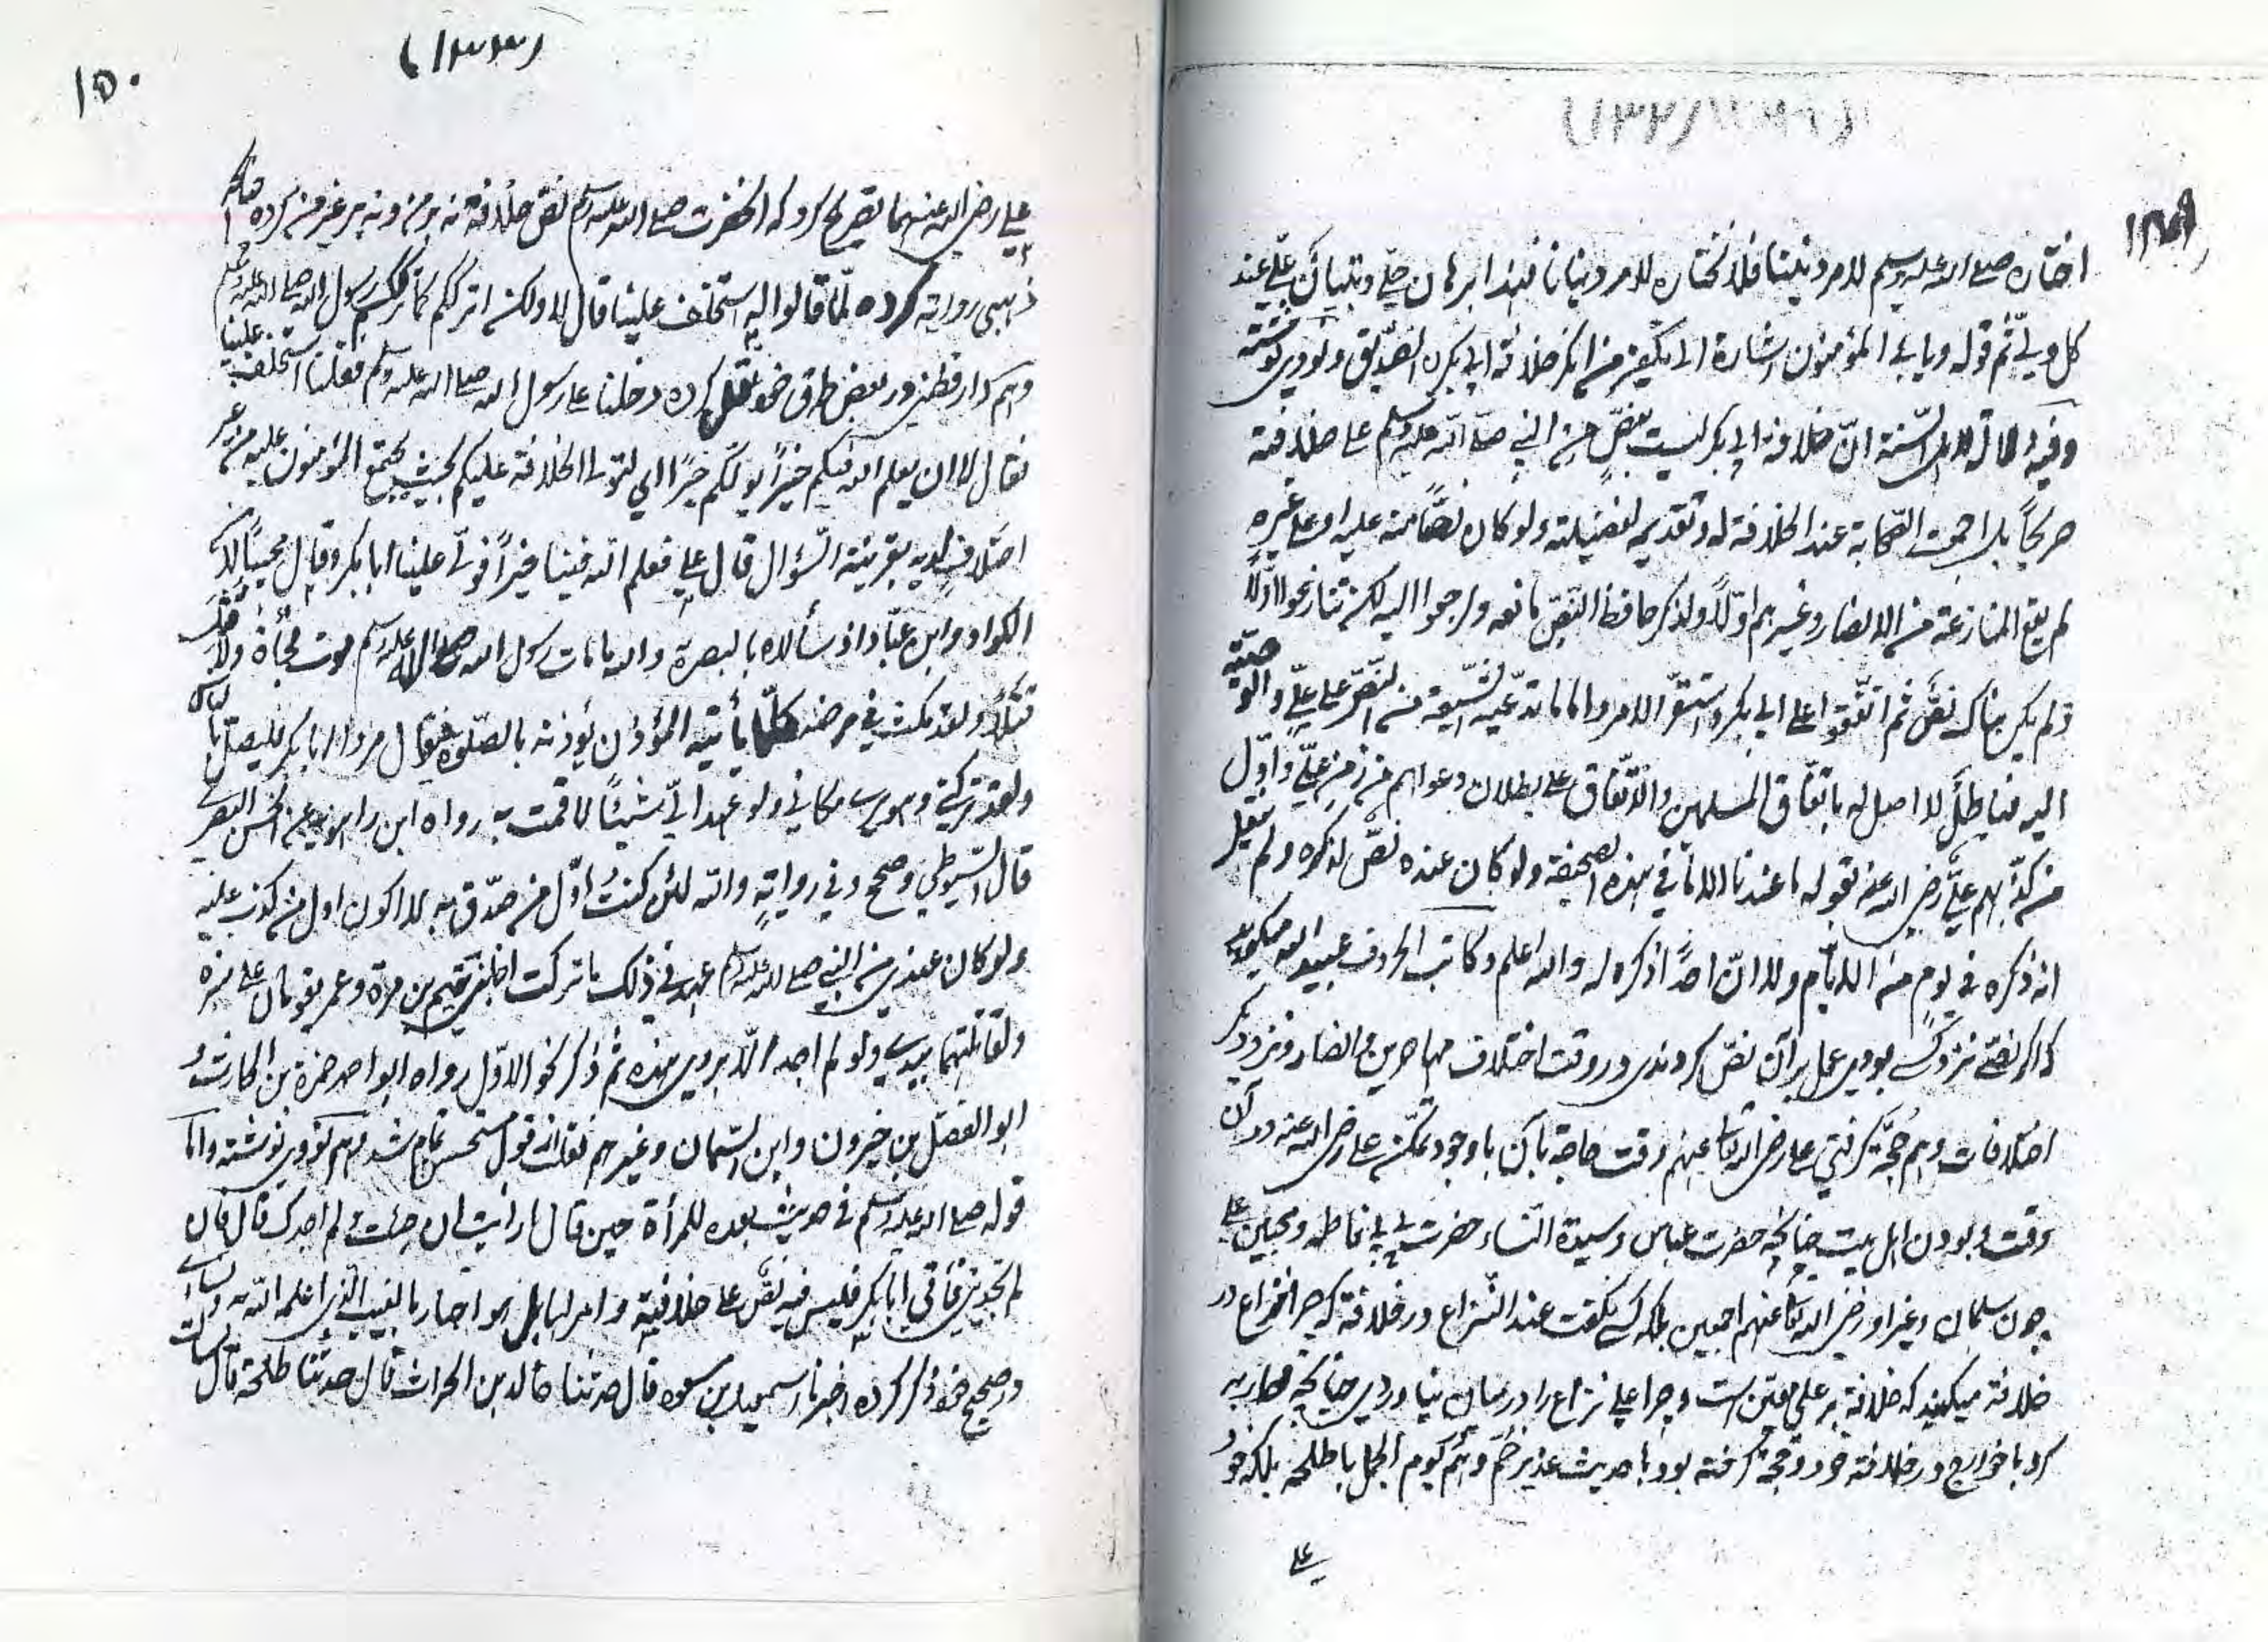 (۱۳۲)
۱۴۹
اختاره صلی الله علیه وسلم لامر دیننا فلا نختاره لامر دنیانا فهذا برهان جلی وتبیان علی عند
کل ولی ثم قوله ویابی المؤمنون اشارة الی تکفیر من انکر خلافة ابی بکر الصدیق ونووی نوشته
وفیه دلالة لاهل السنة انّ خلافة ابی بکر لیست بنصّ من النبی صلی الله علیه وسلم علی خلافته
صریحاً بل اجمعت الصحابة عند الخلافة له وتقدیمه لفضیلته ولو کان نصّاً منه علیه او علی غیره
لم یقع المنازعة من الانصار وغیرهم اوّلاً ولذکر حافظ النصّ ما معه ولرجعوا الیه لکن تنازعوا اوّلاً
ولم یکن هناک نصّ ثم اتفقوا علی ابی بکر واستقرّ الامر واما ما تدّعیه الشیعة من النصّ علی علیّ والوصیّة
الیه فباطل لا اصل له باتفاق المسلمین والاتّفاق علی بطلان دعواهم من زمن علیّ واوّل
من کذّبهم علیّ رضی الله عنه بقوله ما عندنا الا ما فی هذه الصحیفة ولو کان عنده نصّ لذکره ولم ینقل
انه ذکره فی یوم من الایّام ولا انّ احداً ذکره له والله اعلم وکاتب الحروف عبید الله میگوید
که اگر نصّی نزد کسی بودی عمل بر آن نصّ کردندی در وقت اختلاف مهاجرین وانصار ونزد دیگر
اختلافات وهم حجّة گرفتی علی رضی الله تعالی عنهم وقت حاجة بآن با وجود تمکّن علی رضی الله عنه در آن
وقت وبودن اهل بیت چنانچه حضرت عباس وسیدة النساء حضرت بی بی فاطمه ومحبین علی
چون سلمان وغیر او رضی الله تعالی عنهم اجمعین بلکه کسی نگفت عند النزاع در خلافة که چرا نزاع در
خلافة میکنید که خلافة بر علی معین است وچرا علی نزاع را در میان نیاوردی چنانچه محاربه
کرد با خوارج در خلافت خود وحجة گرفته بود با حدیث غدیر خم وهم یوم الجمل با طلحه بلکه خود
علی
(۱۳۳)
۱۵۰
علی رضی الله عنهما تصریح کرد که آنحضرت صلی الله علیه وسلم نصّ خلافة نه بر من ونه بر غیر من کرده چنانچه
ذهبی روایة کرده لمّا قالوا له استخلف علینا قال لا ولکن اترککم کما ترککم رسول الله صلی الله علیه وسلم
وهم دارقطنی در بعض طرق خود نقل کرده دخلنا علی رسول الله صلی الله علیه وسلم فقلنا استخلف علینا
فقال لا ان یعلم الله فیکم خیراً یولّ علیکم خیراً الی لتولی الخلافة علیکم بحیث یجتمع المؤمنون علیه من غیر
اختلاف لدیه بقرینة السؤال قال علی فعلم الله فینا خیراً فولّی علینا ابا بکر وقال مجیباً لابن
الکوا وابن عبّاد اذ سألاه بالبصرة والله ما مات رسول الله صلی الله علیه وسلم موت فجأة ولا قتل
قتلاً ولقد مکث فی مرضه کلّما یأتیه المؤذن یؤذنه بالصلوة فیقول مروا ابا بکر فلیصل بالناس
ولقد ترکنی وهو یری مکانی ولو عهد الیّ شیئاً لاقمت به رواه ابن راهویه عن الحسن البصری
قال السیوطی وصحح وفی روایة والله لئن کنت اوّل من صدّق به لا اکون اول من کذب علیه
ولو کان عندی من النبی صلی الله علیه وسلم عهد فی ذلک ما ترکت اخا بنی تیم بن مرة وعمر یقومان علی منبره
ولقاتلتهما بیدی ولو لم اجد الاّ بردی هذه ثم ذکر نحو الاوّل رواه ابو احمد حمزة بن الحارث و
ابو الفضل بن خیرون وابن السّمان وغیرهم نقلت قول مستحسن تمام شد وهم نووی نوشته واما
قوله صلی الله علیه وسلم فی حدیث بعده للمرأة حین قال ارأیت ان جئت ولم اجدک قال فان
لم تجدینی فأتی ابا بکر فلیس فیه نصّ علی خلافته وامر لها بل هو اخبار بالغیب الذی اعلمه الله به ونسائی
در صحیح خود ذکر کرده اخبرنا اسمعیل بن مسعود قال حدثنا خالد بن الحراث قال حدثنا طلحة قال سألت